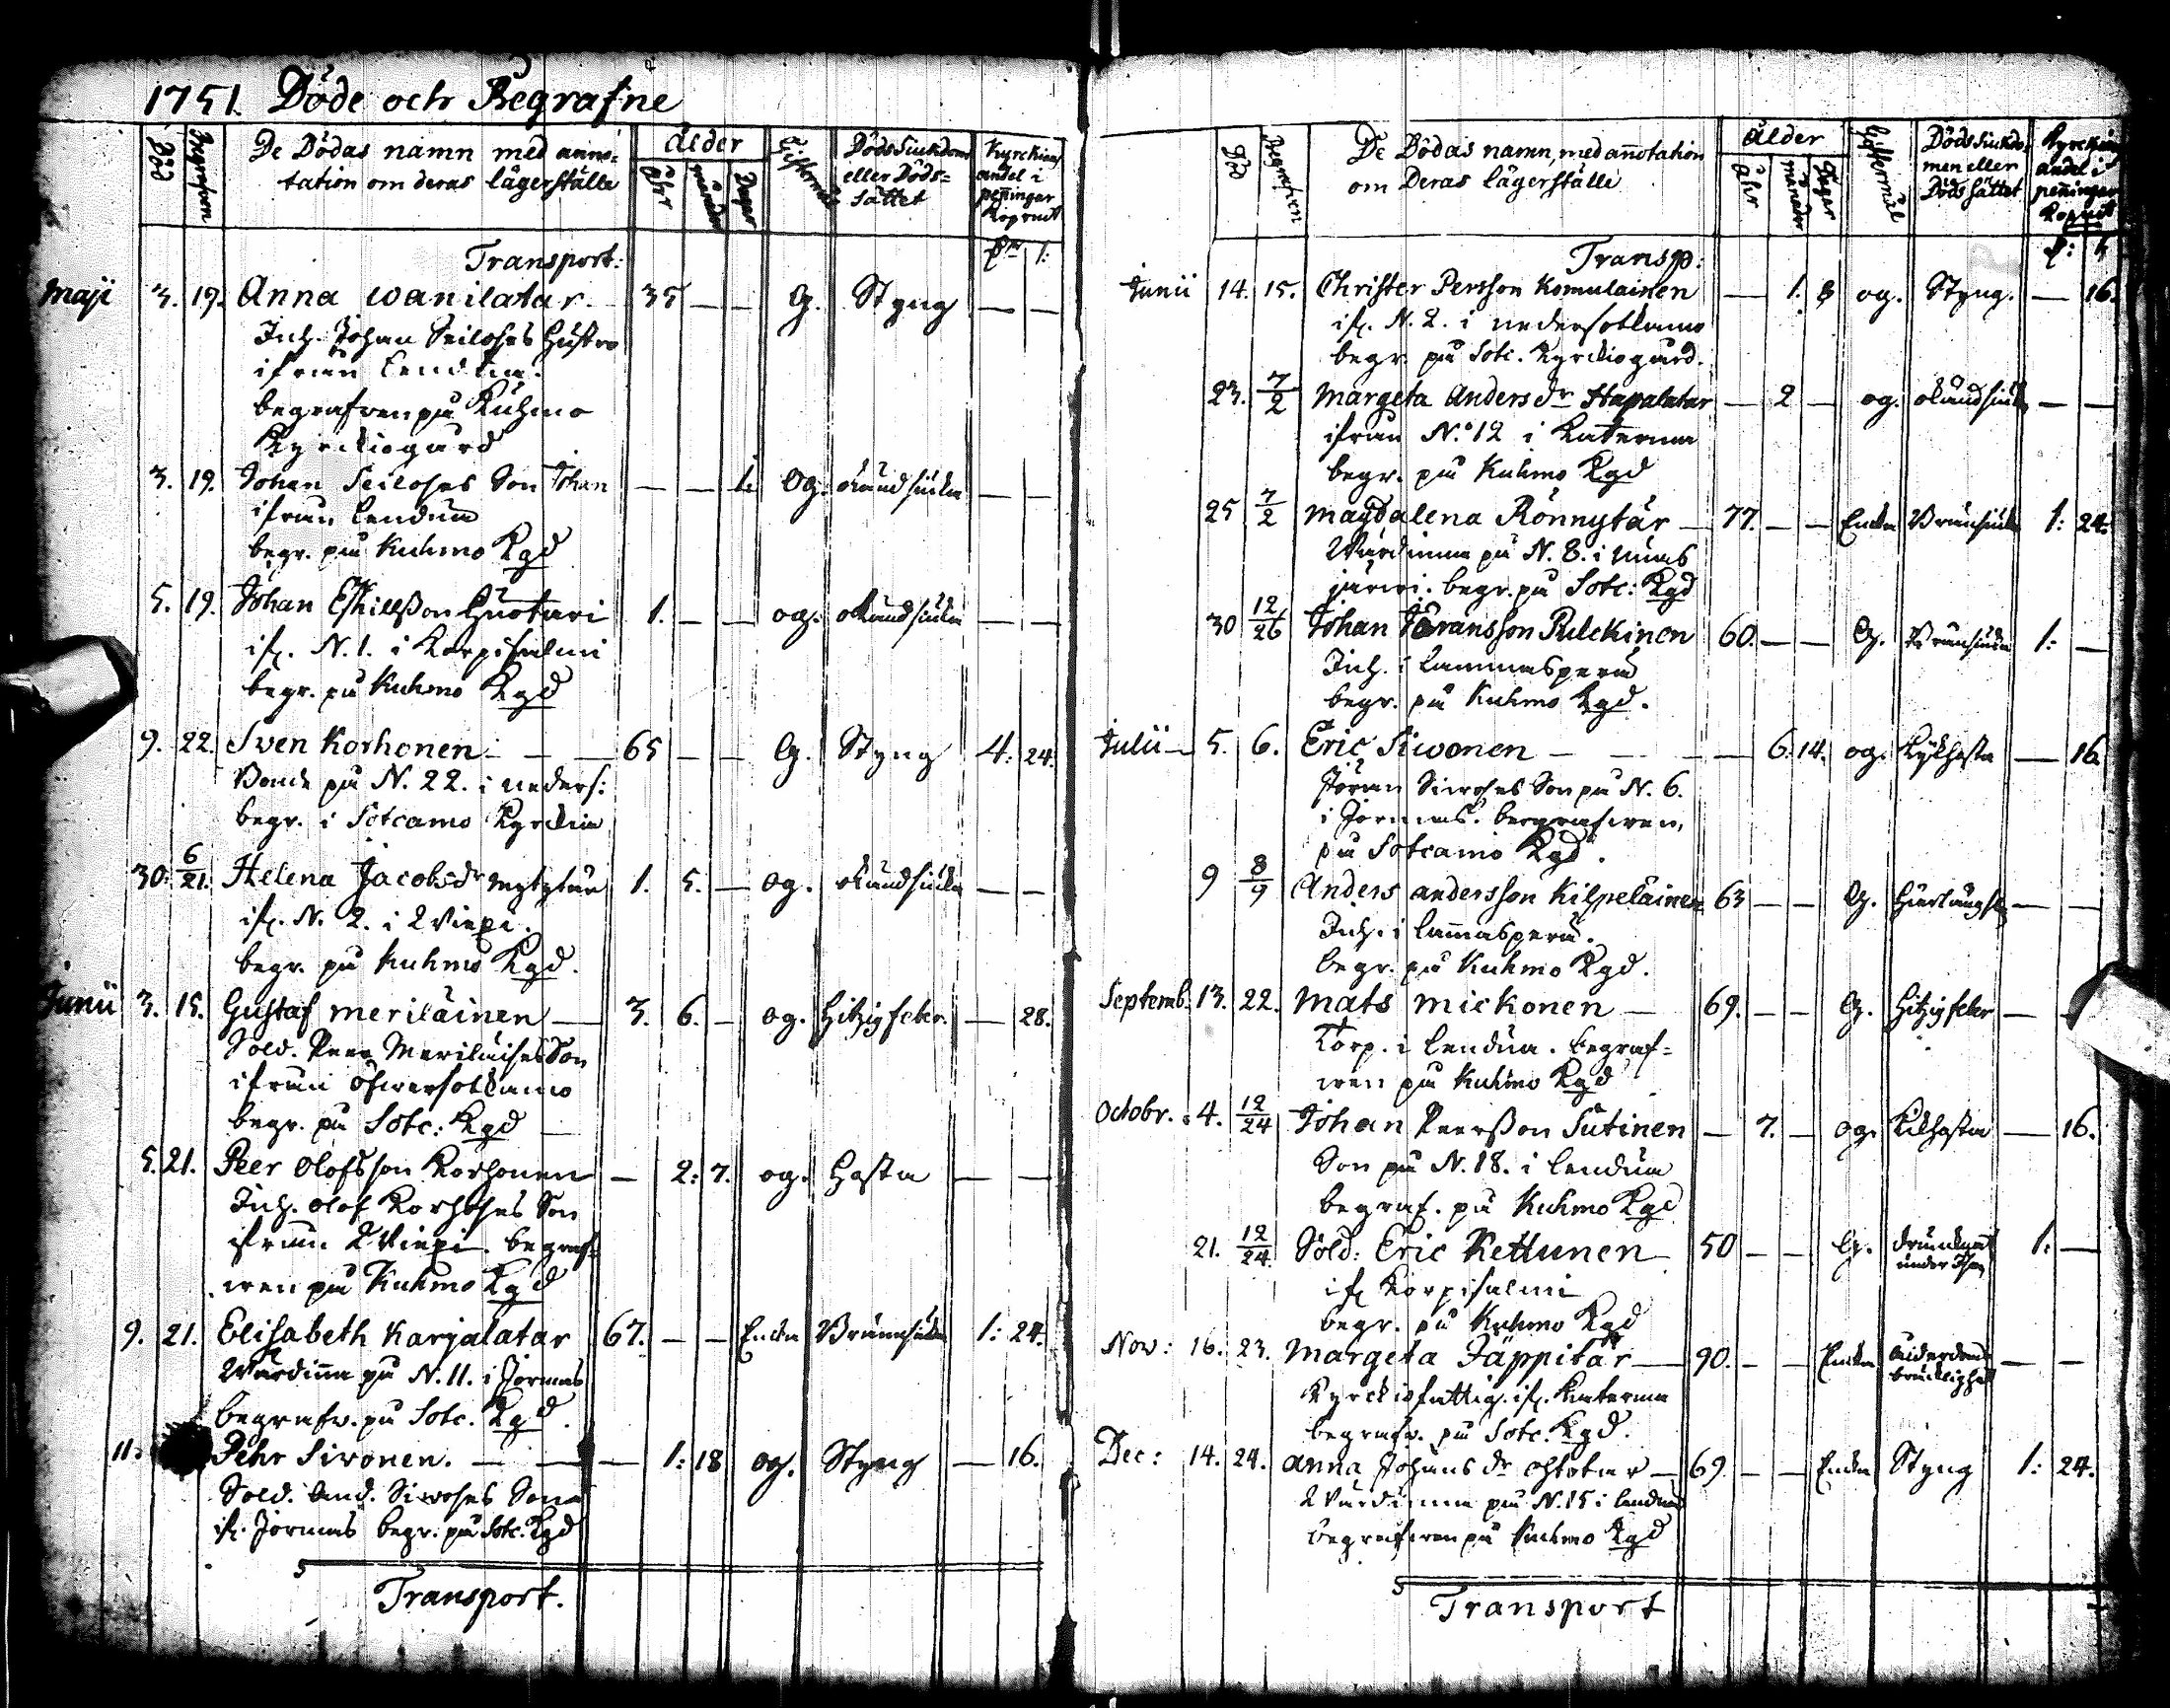 1751. Döde och Begrafne
Död
Begrafven
De Dödas namn med anno=
tation om deras lägerställe
Ålder
åhr
månader
Dagar
Giftermål
Dödssiukdom
eller Döds=
sättet
Kyrckians
andel i
penningar
Kopmt
Transport:
Maji 3. 19. Anna Wanilatar 35 — — G. Styng — —
Inh. Johan Seiloses Hustro
ifrån Lendua.
begrafven på Kuhmo
Kyrckiogård
3. 19. Johan Seiloses Son Johan — — 1. og. okänd siuka — —
ifrån Lendua
begr. på Kuhmo Kgd
5. 19. Johan Eskillsson Huotari 1. — — og. okänd siuka — —
ifr. N. 1. i Korpisalmi
begr. på Kuhmo Kgd
9. 22. Sven Korhonen — — 65 — — G. Styng 4: 24.
Bonde på N. 22. i neders:
begr. i Sotcamo Kyrckia
30. 6/21. Helena Jacobsdr 1. 5. — og. okänd siuka — —
ifr. N. 2. i Wiexi.
begr. på Kuhmo Kgd.
Junii 3. 15. Gustaf Meriläinen — 3. 6. — og. Hitzig feber. — 28.
Sold. Peer Meriläises Son
ifrån öfwersotkamo
begr. på Sotc: Kgd —
5. 21. Peer Olofsson Korhonen — 2: 7. og. Hosta — —
Inh. Olof Korhoses Son
ifrån Wiexi. begraf=
wen på Kuhmo Kgd
9. 21. Elisabeth Karjalatar 67. — — Enka Brännsiuka 1: 24.
Wärdinna på N. 11. i Jormas
begrafw. på Sotc. Kgd.
11. Pehr Sivonen. — — — 1: 18 og. Styng — 16.
Sold. And. Siwoses Son
ifr. Jormas begr. på Sotc. Kgd
Transport.
Död
Begrafven
De Dödas namn, med annotation
om Deras lägerställe
Ålder
åhr
månader
Dagar
Giftermål
Dödssiukdo=
men eller
Dödssättet
Kyrckians
andel i
penningar
Kopmt
Transp:
Junii 14. 15. Christer Persson Komulainen — 1. 8 og. Styng. — 16.
ifr. N. 2. i nedersotkamo
begr. på Sotc. Kyrckiogård.
23. 7/2 Margeta Anders dr Hapalatar — 2 — og. okänd siuka — —
ifrån N.o 12 i Katerma
begr. på Kuhmo Kgd
25 7/2 Magdalena Rönnytär — 77. — — Enka Brännsiuka 1: 24.
Wärdinna på N. 8. i Nuas
järwi. begr. på Sotc: Kgd
30 12/26 Johan Göransson Pulckinen 60. — — G. Brännsiuka 1: —
Inh. i Lammasperä
begr. på Kuhmo Kgd.
Julii — 5. 6. Eric Siwonen — — — 6. 14. og. Kykhosta — 16
Jöran Siwoses Son på N. 6.
i Jormas. begrafwen,
på Sotcamo Kgd.
9 8/9 Anders Andersson Kilpeläinen 63 — — G. — —
Inh. i Lammasperä.
begr. på Kuhmo Kgd.
Septemb. 13. 22. Mats Mickonen — 69. — — G. Hitzig feber — —
Torp. i Lendua. begraf=
wen på Kuhmo Kgd
Octobr. 4. 12/24 Johan Peersson Sutinen — 7. — og. Kikhosta — 16.
Son på N. 18. i Lendua
begraf. på Kuhmo Kgd
21. 12/24. Sold: Eric Kettunen — 50 — — G. drunknat under Isen 1: —
ifr Korpisalmi
begr. på Kuhmo Kgd
Nov: 16. 23. Margeta Jäppitär — 90. — — Enka ålderdoms bräcklighet — —
Kyrckiofattig. ifr. Katerma
begrafw. på Sotc. Kgd.
Dec: 14. 24. Anna Johans dr — 69. — — Enka Styng 1: 24.
Wärdinna på N. 15 i Lendua
begrafwen på Kuhmo Kgd
Transport